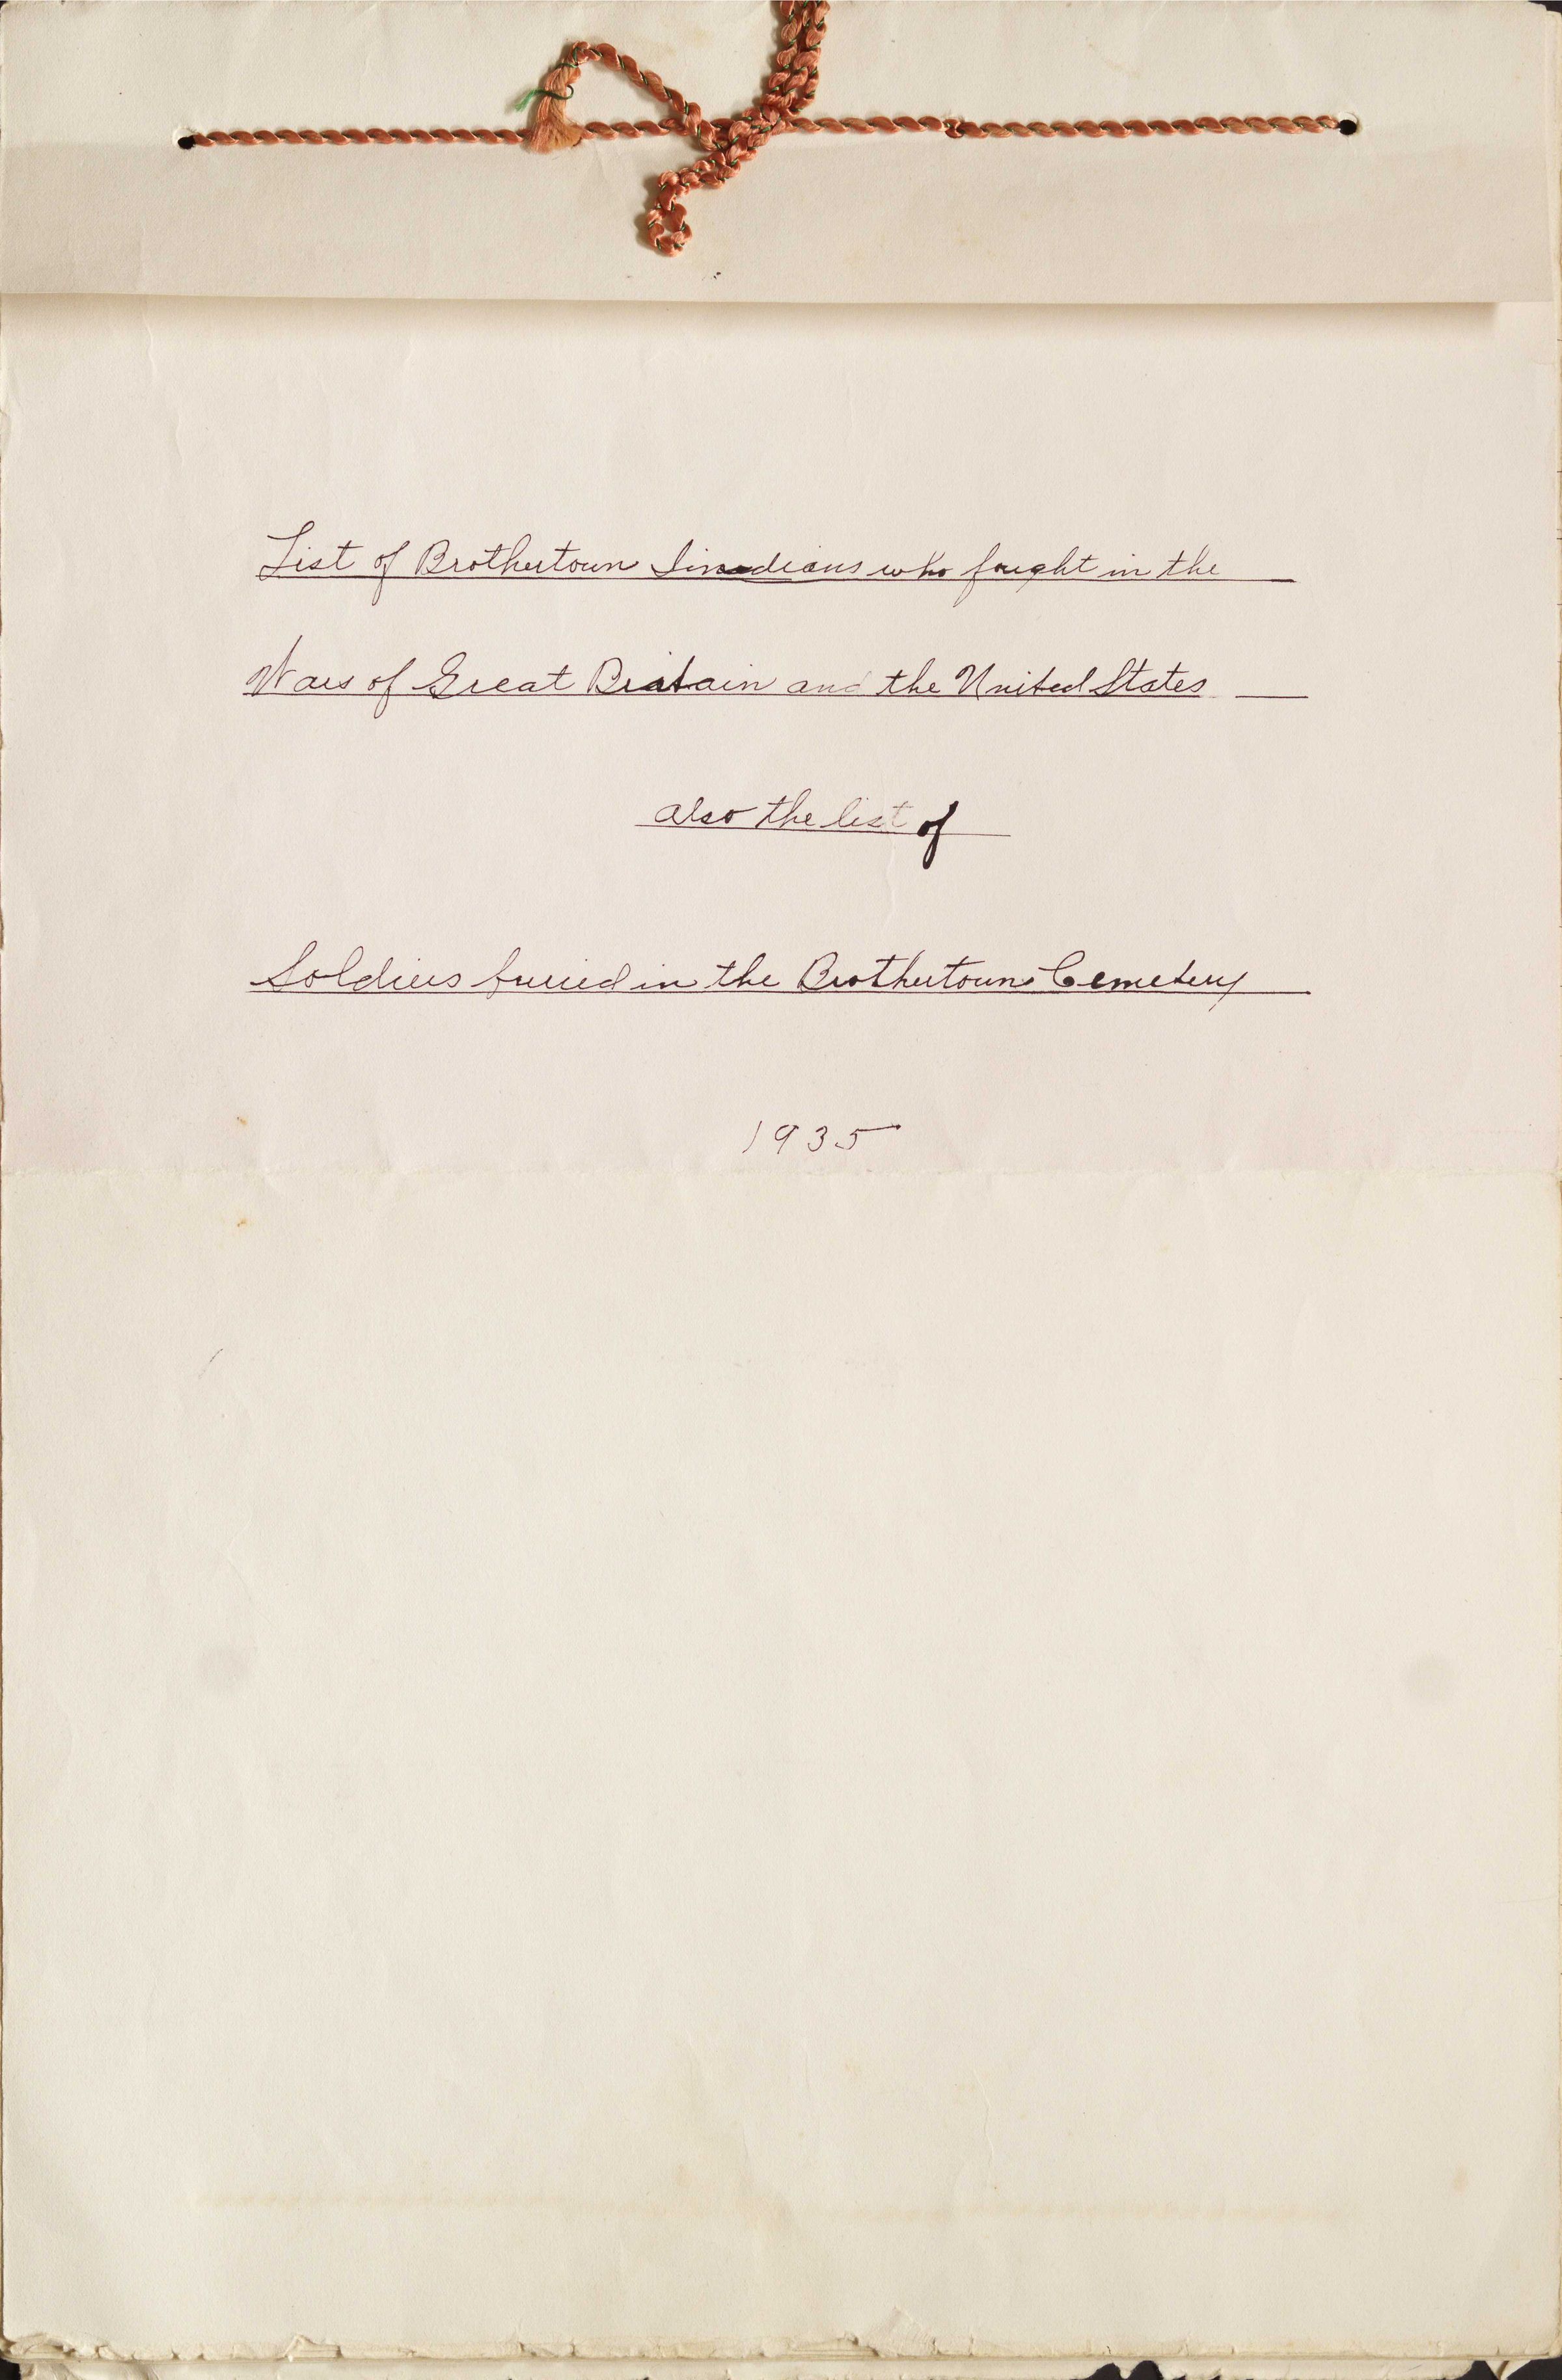 List of Brothertown Indians who fought in the
Wars of Great Britain and the United States
also the list of
Soldiers buried in the Brothertown Cemetery
1935